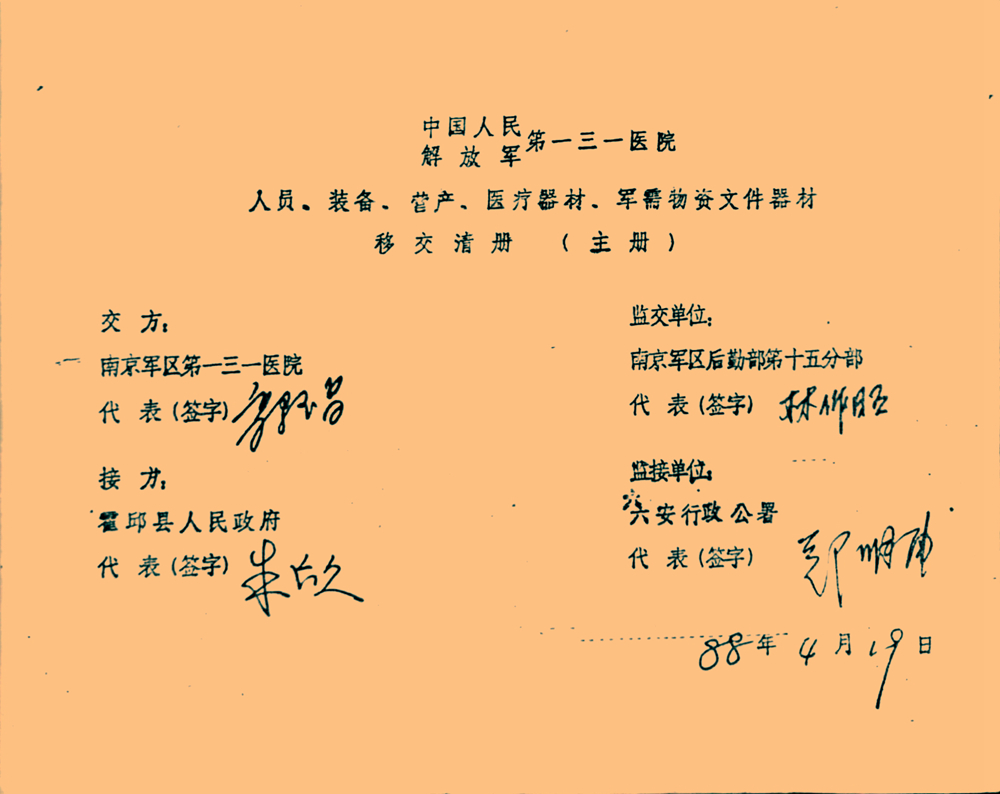 中国人民
解放军第一三一医院
人员、装备、营产、医疗器材、军需物资文件器材
移交清册 (主册)
交方:
南京军区第一三一医院
代表(签字)
接方:
霍邱县人民政府
代表(签字)
监交单位:
南京军区后勤部第十五分部
代表(签字) 林作旺
监接单位:
六安行政公署
代表(签字)
88年4月19日